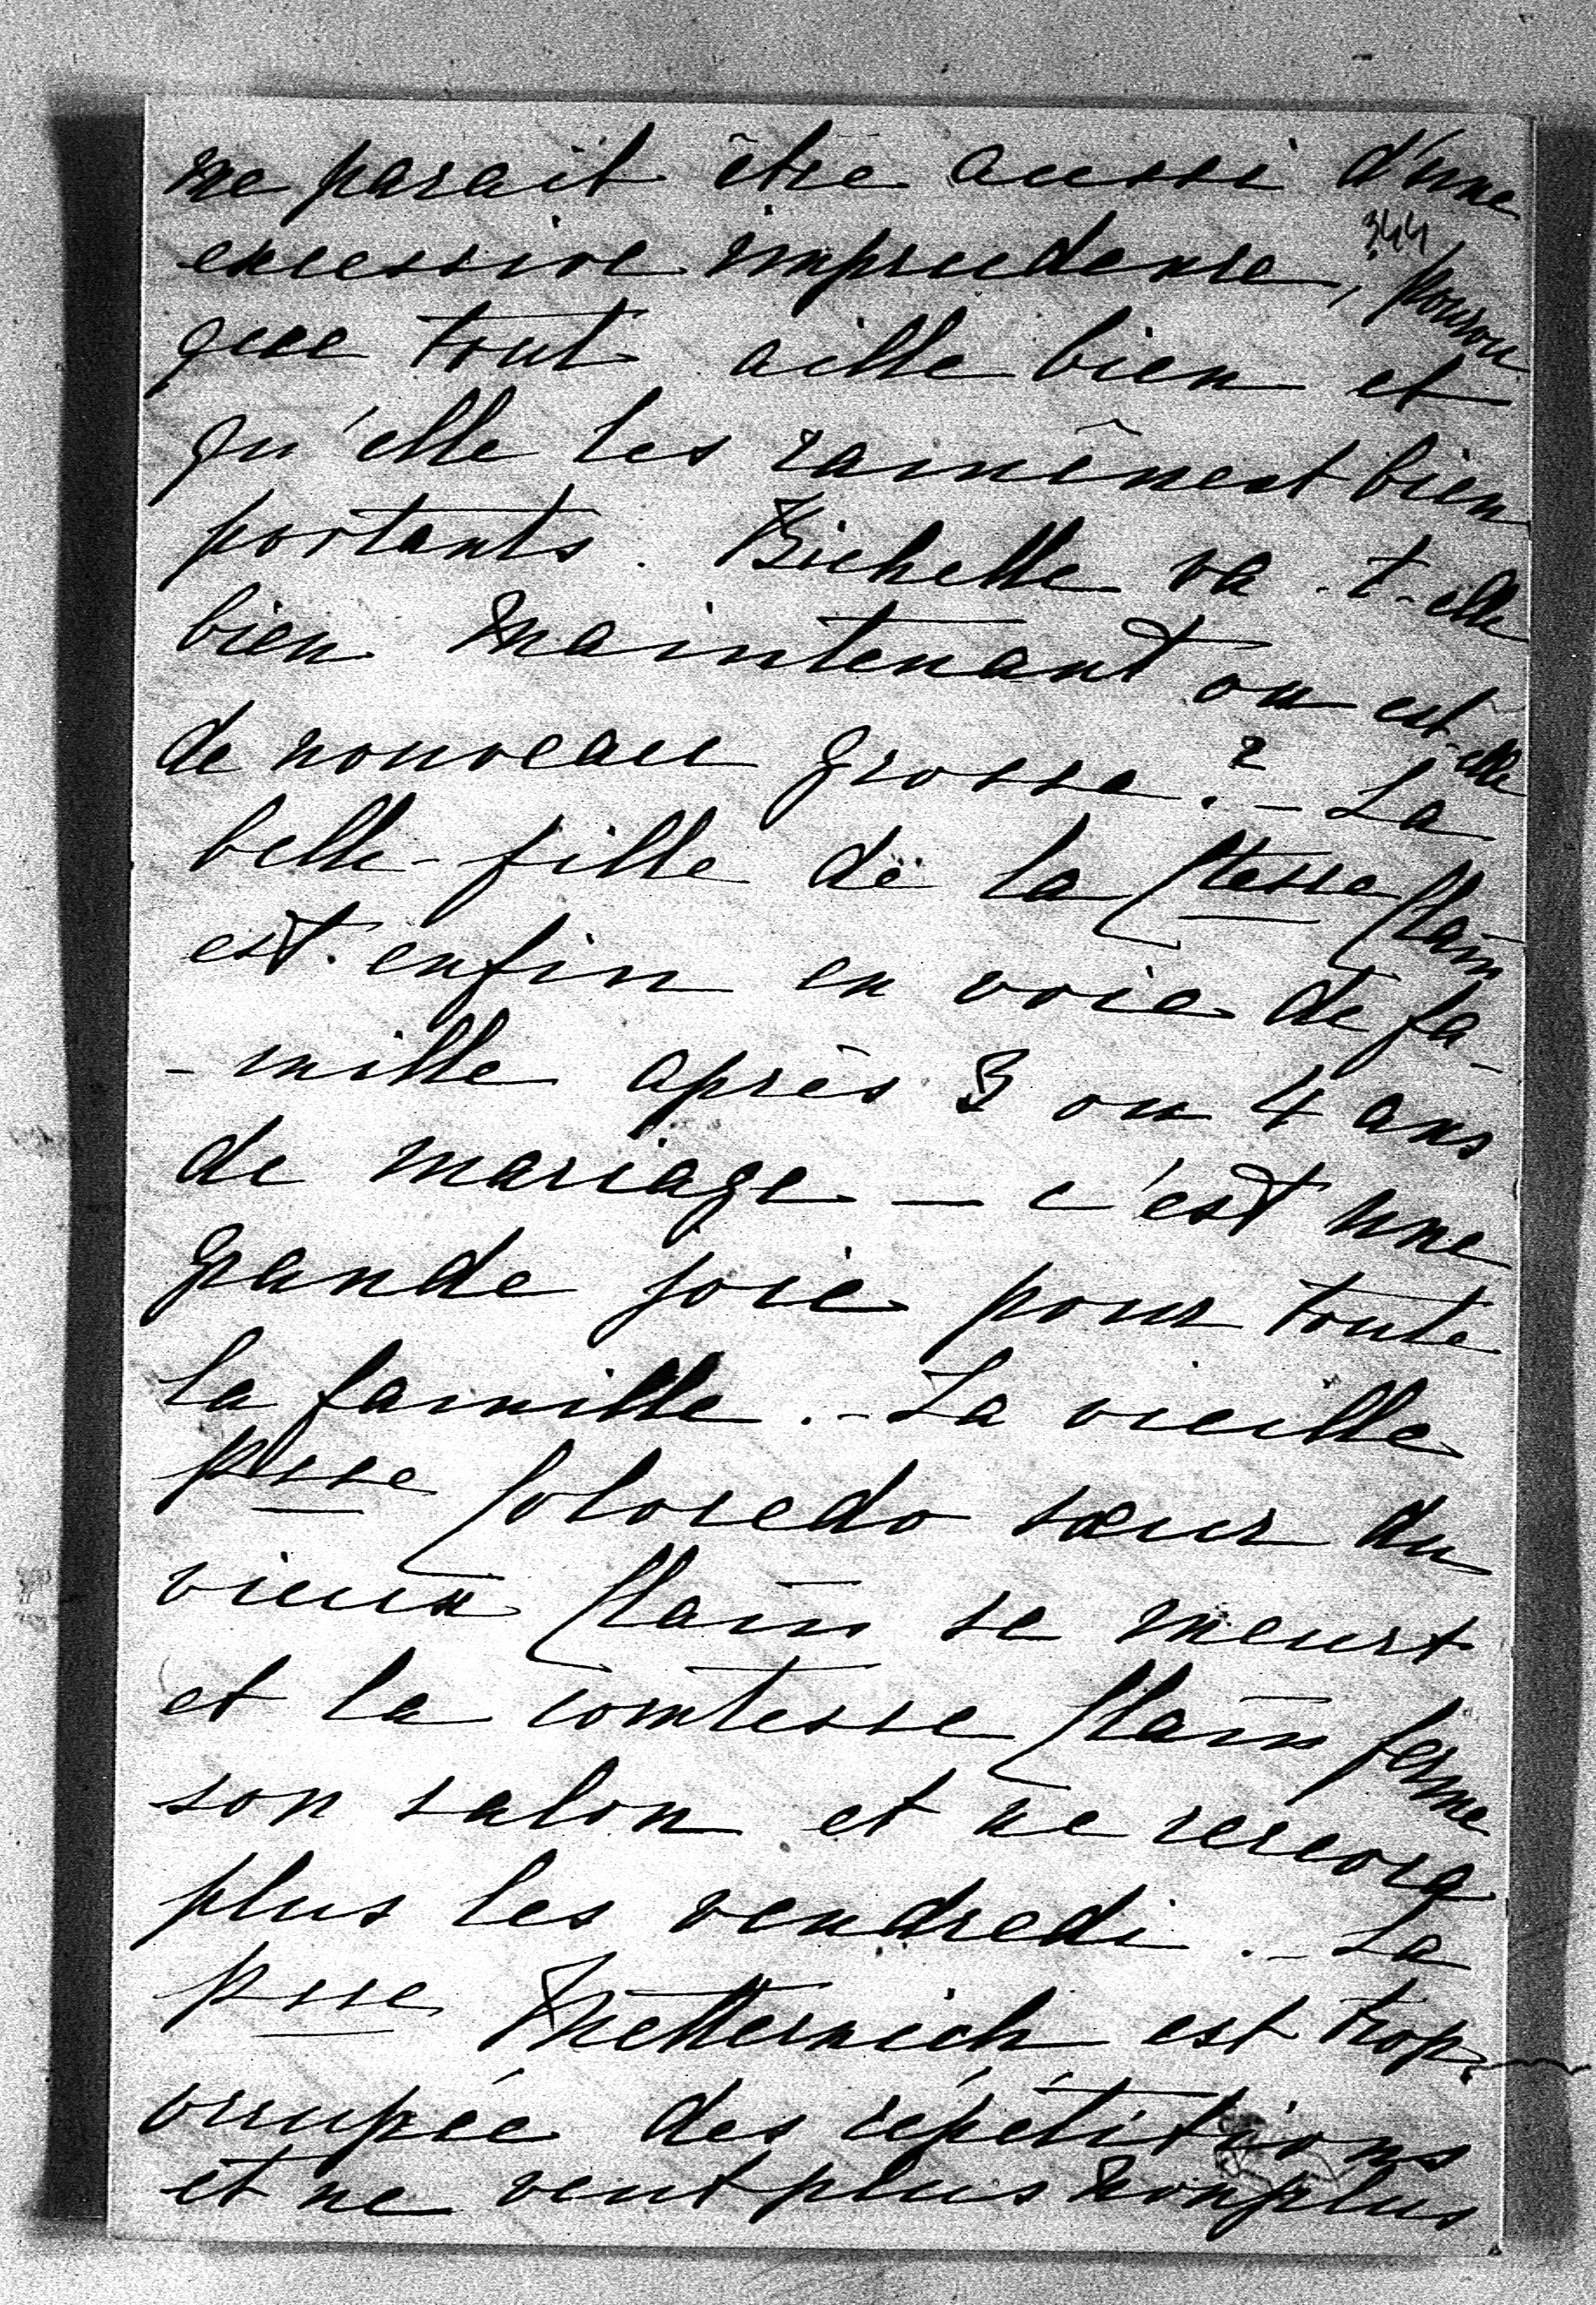 me parait être aussi d'une
344
excessive imprudence, pourvu
que tout aille bien et
qu'elle les ramênent bien
portants. Bichette va-t-elle
bien maintenant ou est-elle
de nouveau grosse? - La
belle-fille de la Ctesse Clam
est enfin en voie de fa-
-mille après 3 ou 4 ans
de mariage - c'est une
grande joie pour toute
la famille. - La vieille
Psse Coloredo sœur du
vieux Clam se meurt
et la comtesse Clam ferme
son salon et ne reçoit
plus les vendredi. - La
Psse Metternich est trop
occupée des répétitions
et ne veut plus non plus